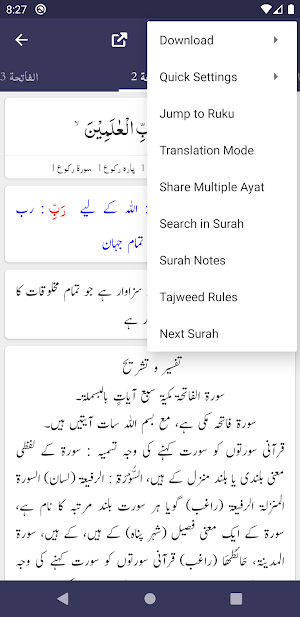 8:27
الفاتحة 3
2
Download
Quick Settings
Jump to Ruku
Translation Mode
Share Multiple Ayat
Search in Surah
Surah Notes
Tajweed Rules
Next Surah
رَبِّ الْعٰلَمِيْنَ
پارہ رکوع 1 سورۃ رکوع 1
: اللہ کے لیے رَبِّ : رب
تمام جہان
سزاوار ہے جو تمام مخلوقات کا
ہے
تفسیر و تشریح
سورۃ الفاتحۃ مکیۃ سبع آیات بالبسملۃ۔
سورۃ فاتحہ مکی ہے، مع بسم اللہ سات آیتیں ہیں۔
قرآنی سورتوں کو سورت کہنے کی وجہ تسمیہ : سورۃ کے لفظی
معنی بلندی یا بلند منزل کے ہیں، السُّوْرَۃِ : الرفیعۃ (لسان) السورۃ
المنزلۃ الرفیعۃ (راغب) گویا ہر سورت بلند مرتبہ کا نام ہے،
سورۃ کے ایک معنی فصیل (شہر پناہ) کے ہیں، کے ہیں، سورۃ
المدینۃ، حَائطُھَا (راغب) قرآنی سورتوں کو سورت کہنے کی وجہ